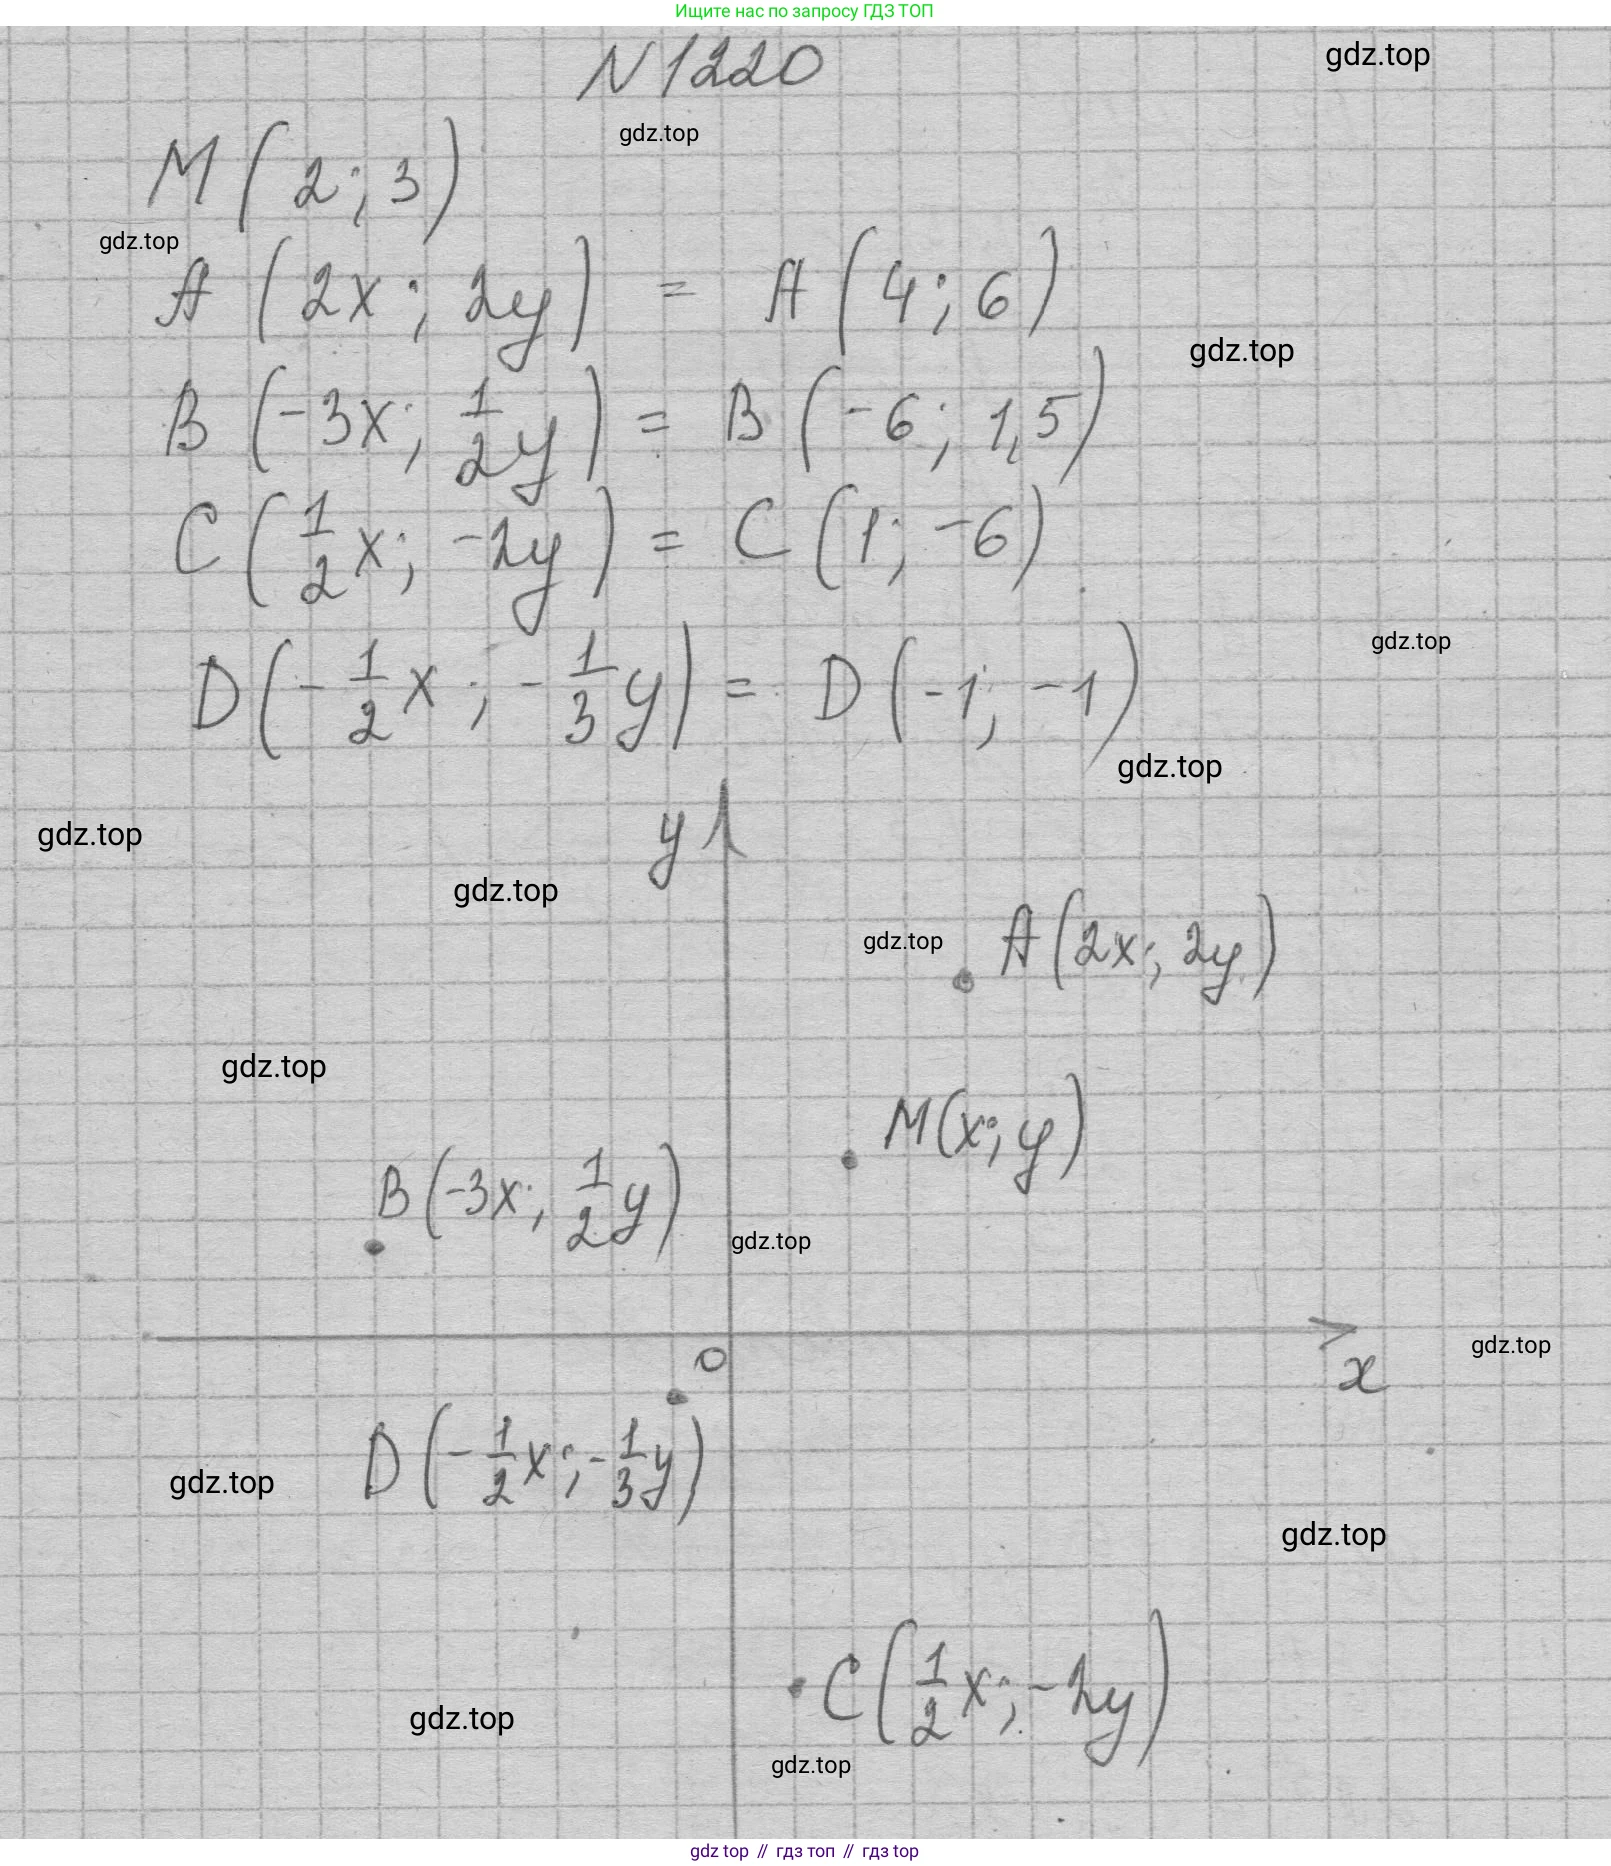 Ищите нас по запросу ГДЗ ТОП
N 1220
gdz.top
gdz.top
M (2; 3)
gdz.top
A (2x; 2y) = A (4; 6)
gdz.top
B (-3x; 1/2 y) = B (-6; 1,5)
C (1/2 x; -2y) = C (1; -6)
gdz.top
D (-1/2 x; -1/3 y) = D (-1; -1)
gdz.top
y
gdz.top
gdz.top
gdz.top
A (2x; 2y)
gdz.top
M (x; y)
B (-3x; 1/2 y)
gdz.top
0
x
gdz.top
D (-1/2 x; -1/3 y)
gdz.top
gdz.top
C (1/2 x; -2y)
gdz.top
gdz.top
gdz top // гдз топ // гдз top